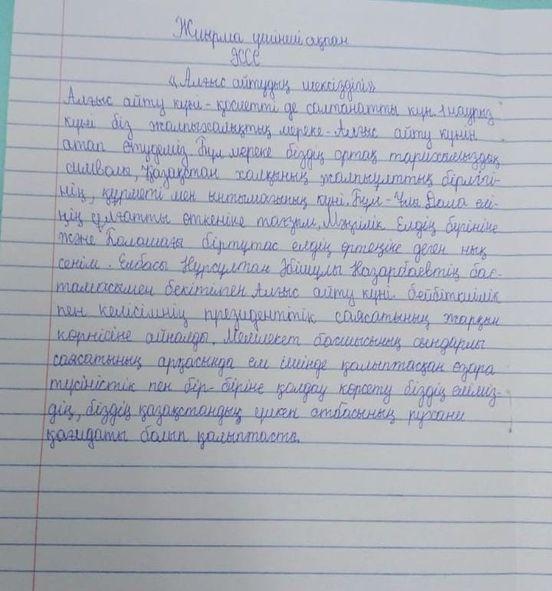 Жиырма үшінші ақпан
ЖСС
«Алғыс айтудың шексіздігі»
Алғыс айту күні - қасиетті де салтанатты күн. 1 наурыз
күні біз жалпыхалықтық мереке - Алғыс айту күнін
атап өтудеміз. Бұл мереке біздің ортақ тарихымыздың
символы, Қазақстан халқының жалпыұлттық бірліғі-
нің, құрметі мен ынтымағының күні. Бұл - Ұлы Дала елі-
нің өткеніне тағзым, Мәңгілік Елдің бүгініне
және Болашағы біртұтас елдің ертеңіне деген нық
сенім. Елбасы Нұрсұлтан Әбішұлы Назарбаевтің бас-
тамасымен бекітілген Алғыс айту күні бейбітшілік
пен келісімнің президенттік саясатының жарқын
көрінісіне айналды. Мемлекет басшысының сындарлы
саясатының арқасында ел ішінде қалыптасқан өзара
түсіністік пен бір-біріне қолдау көрсету біздің еліміз-
дің, біздің қазақстандық үлкен отбасының рухани
қағидаты болып қалыптасты.